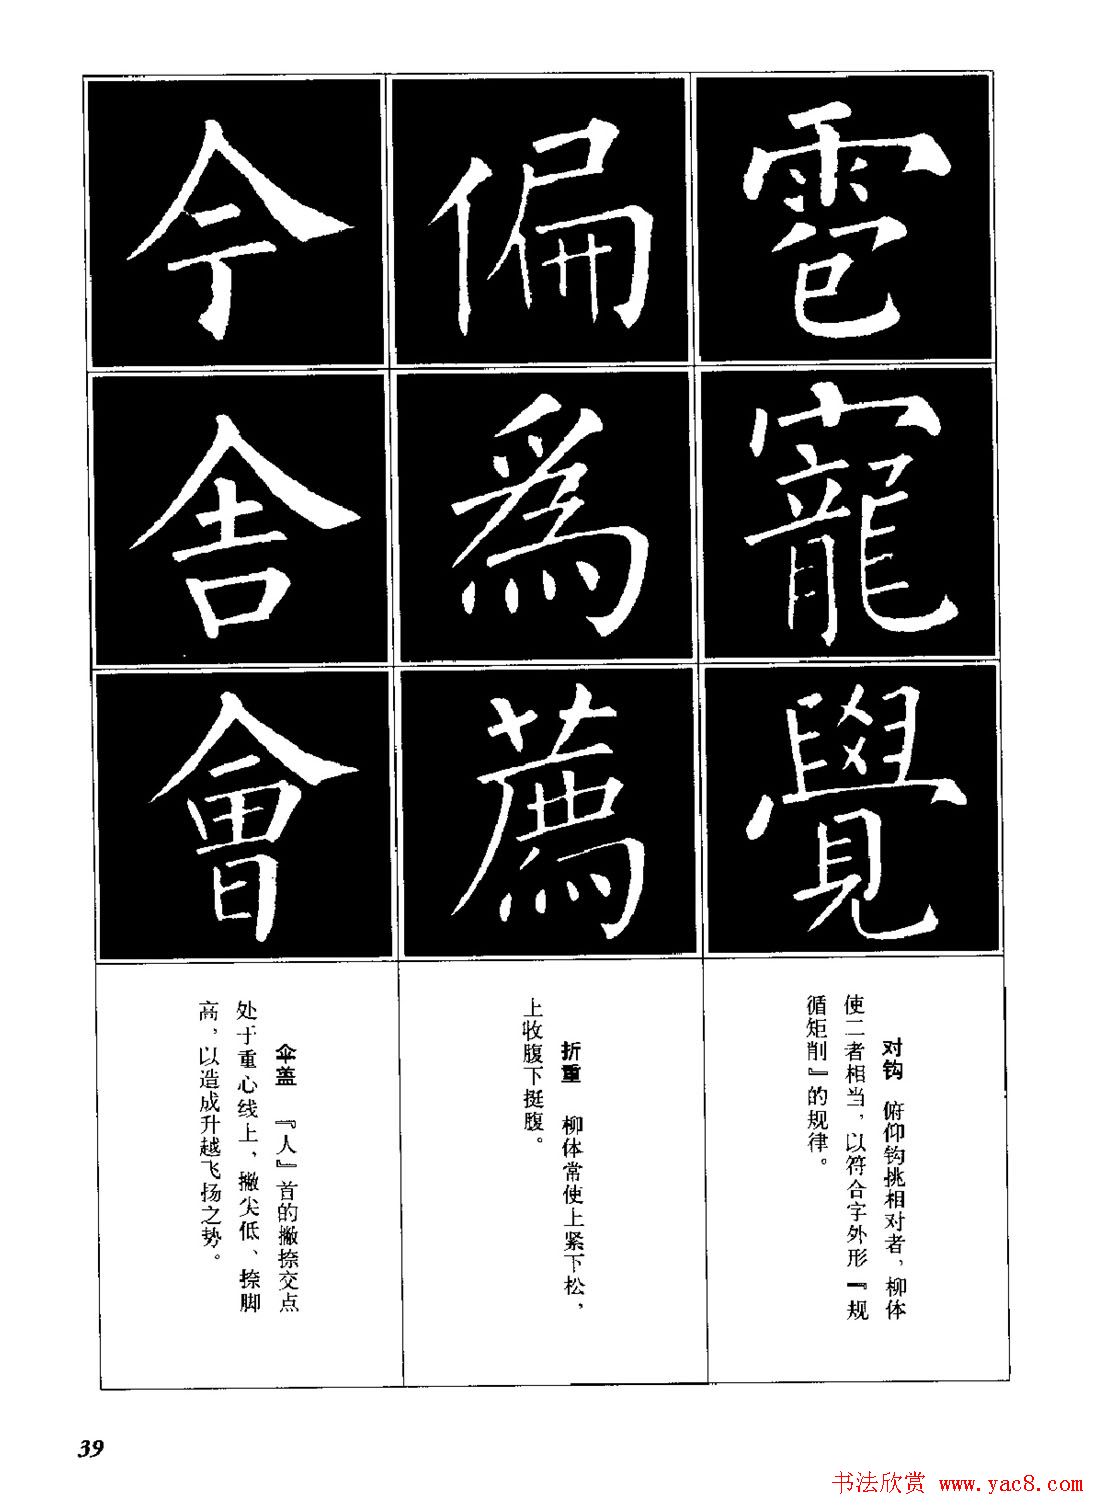 雹
寵
覺
对钩 俯仰钩挑相对者，柳体
使二者相当，以符合字外形『规
循矩削』的规律。
偏
爲
薦
折重 柳体常使上紧下松，
上收腹下挺腹。
今
舍
會
伞盖 『人』首的撇捺交点
处于重心线上，撇尖低、捺脚
高，以造成升越飞扬之势。
39
书法欣赏 www.yac8.com